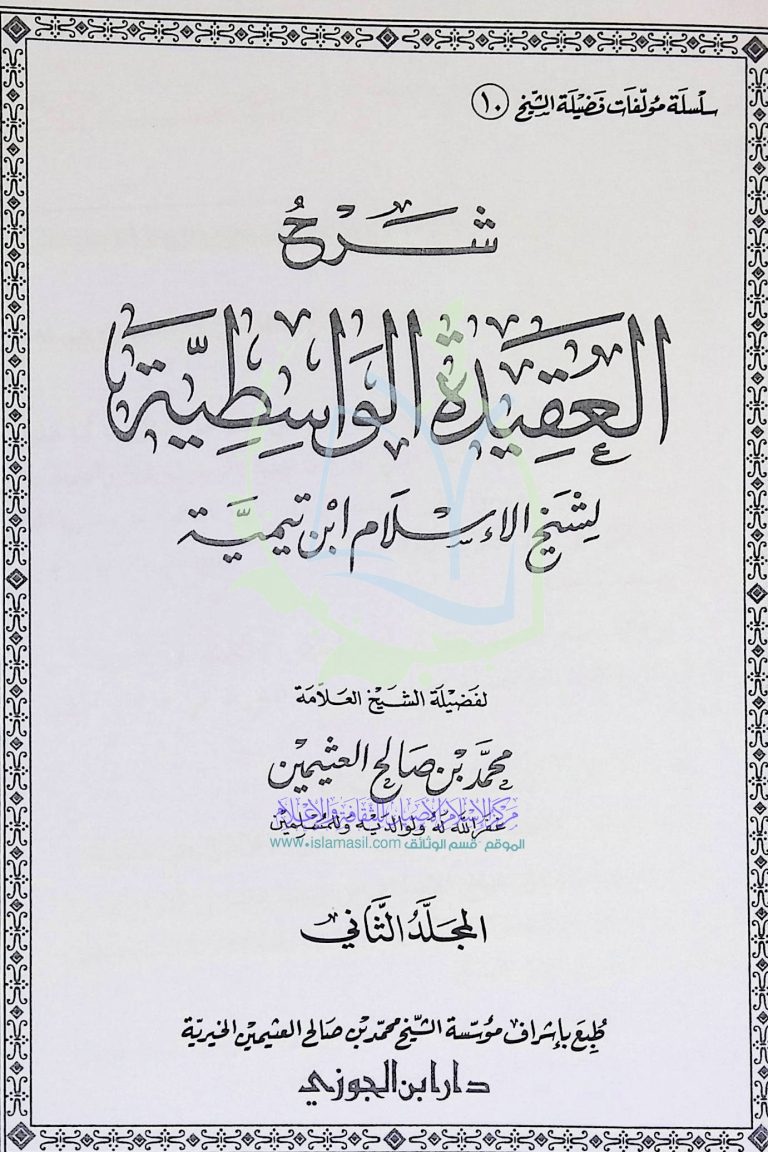 سلسلة مؤلفات فضيلة الشيخ (١٠)
شَرْحُ
العَقِيدَةِ الوَاسِطِيَّةِ
لِشَيْخِ الإِسْلَامِ ابْنِ تَيْمِيَّة
لفَضيلَة الشَّيخ العَلاَّمَة
محمَّد بْن صَالح العثيمين
غفَر الله لَهُ ولوالدَيْه وللمُسْلِمِيْن
مركز الإسلام الأصيل للثقافة والإعلام
الموقع - قسم الوثائق www.islamasil.com
المجَلَّدُ الثَّاني
طُبِعَ بإشراف مؤسّسة الشّيخ محمّد بْن صَالح العثيمين الخيريّة
دار ابن الجوزي